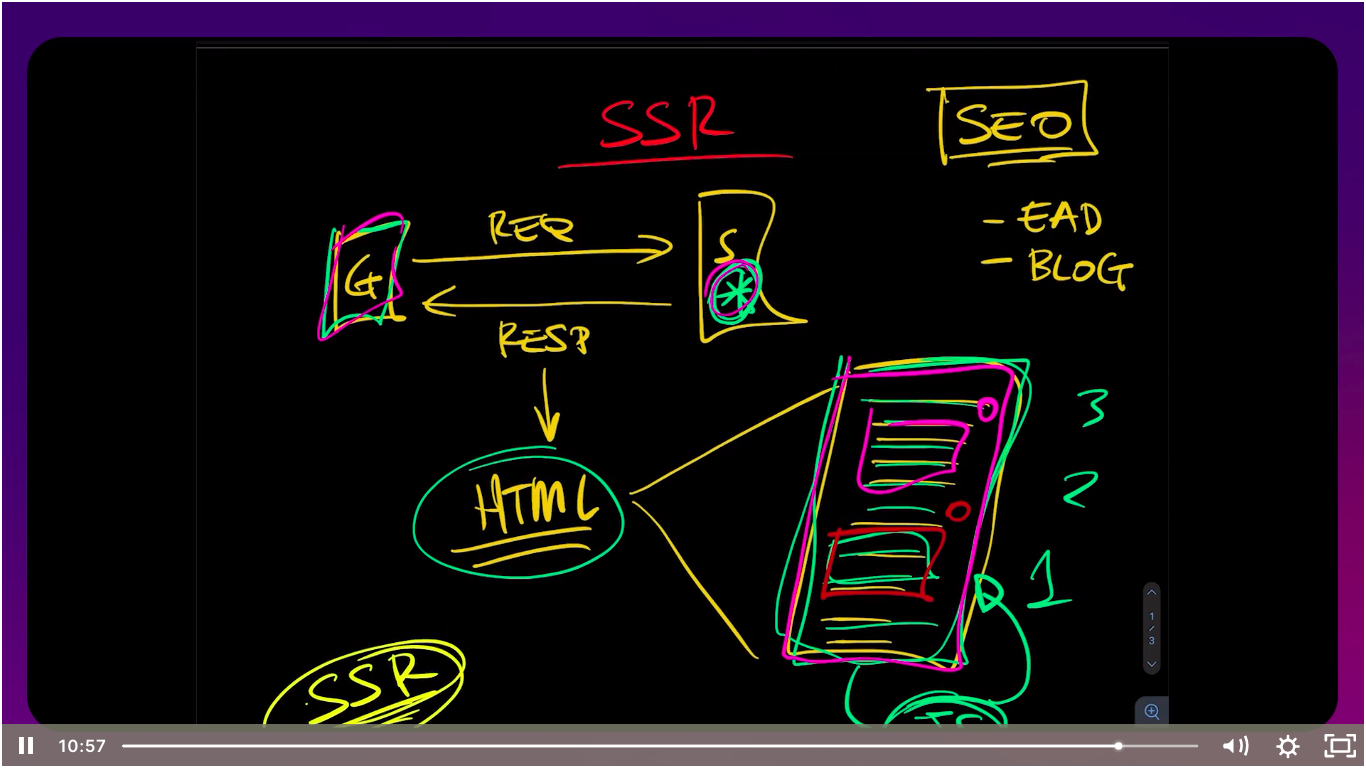 SSR
SEO
- EAD
- BLOG
REQ
G
S
*
RESP
HTML
3
2
1
SSR
JS
1
/
3
10:57